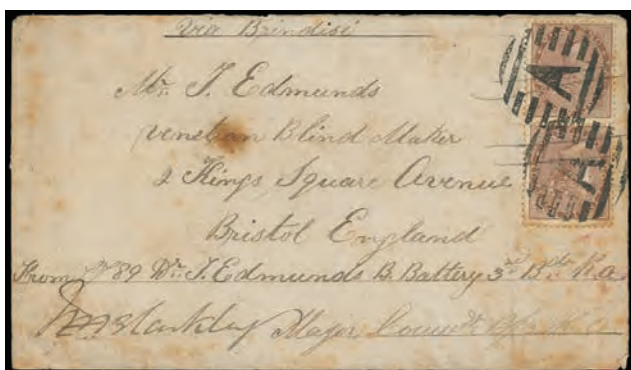 Via Brindisi
Mr. J. Edmunds
Venetian Blind Maker
2 Kings Square Avenue
Bristol England
From 89 Dr. J. Edmunds B. Battery 3rd Bde R.a.
Major
A